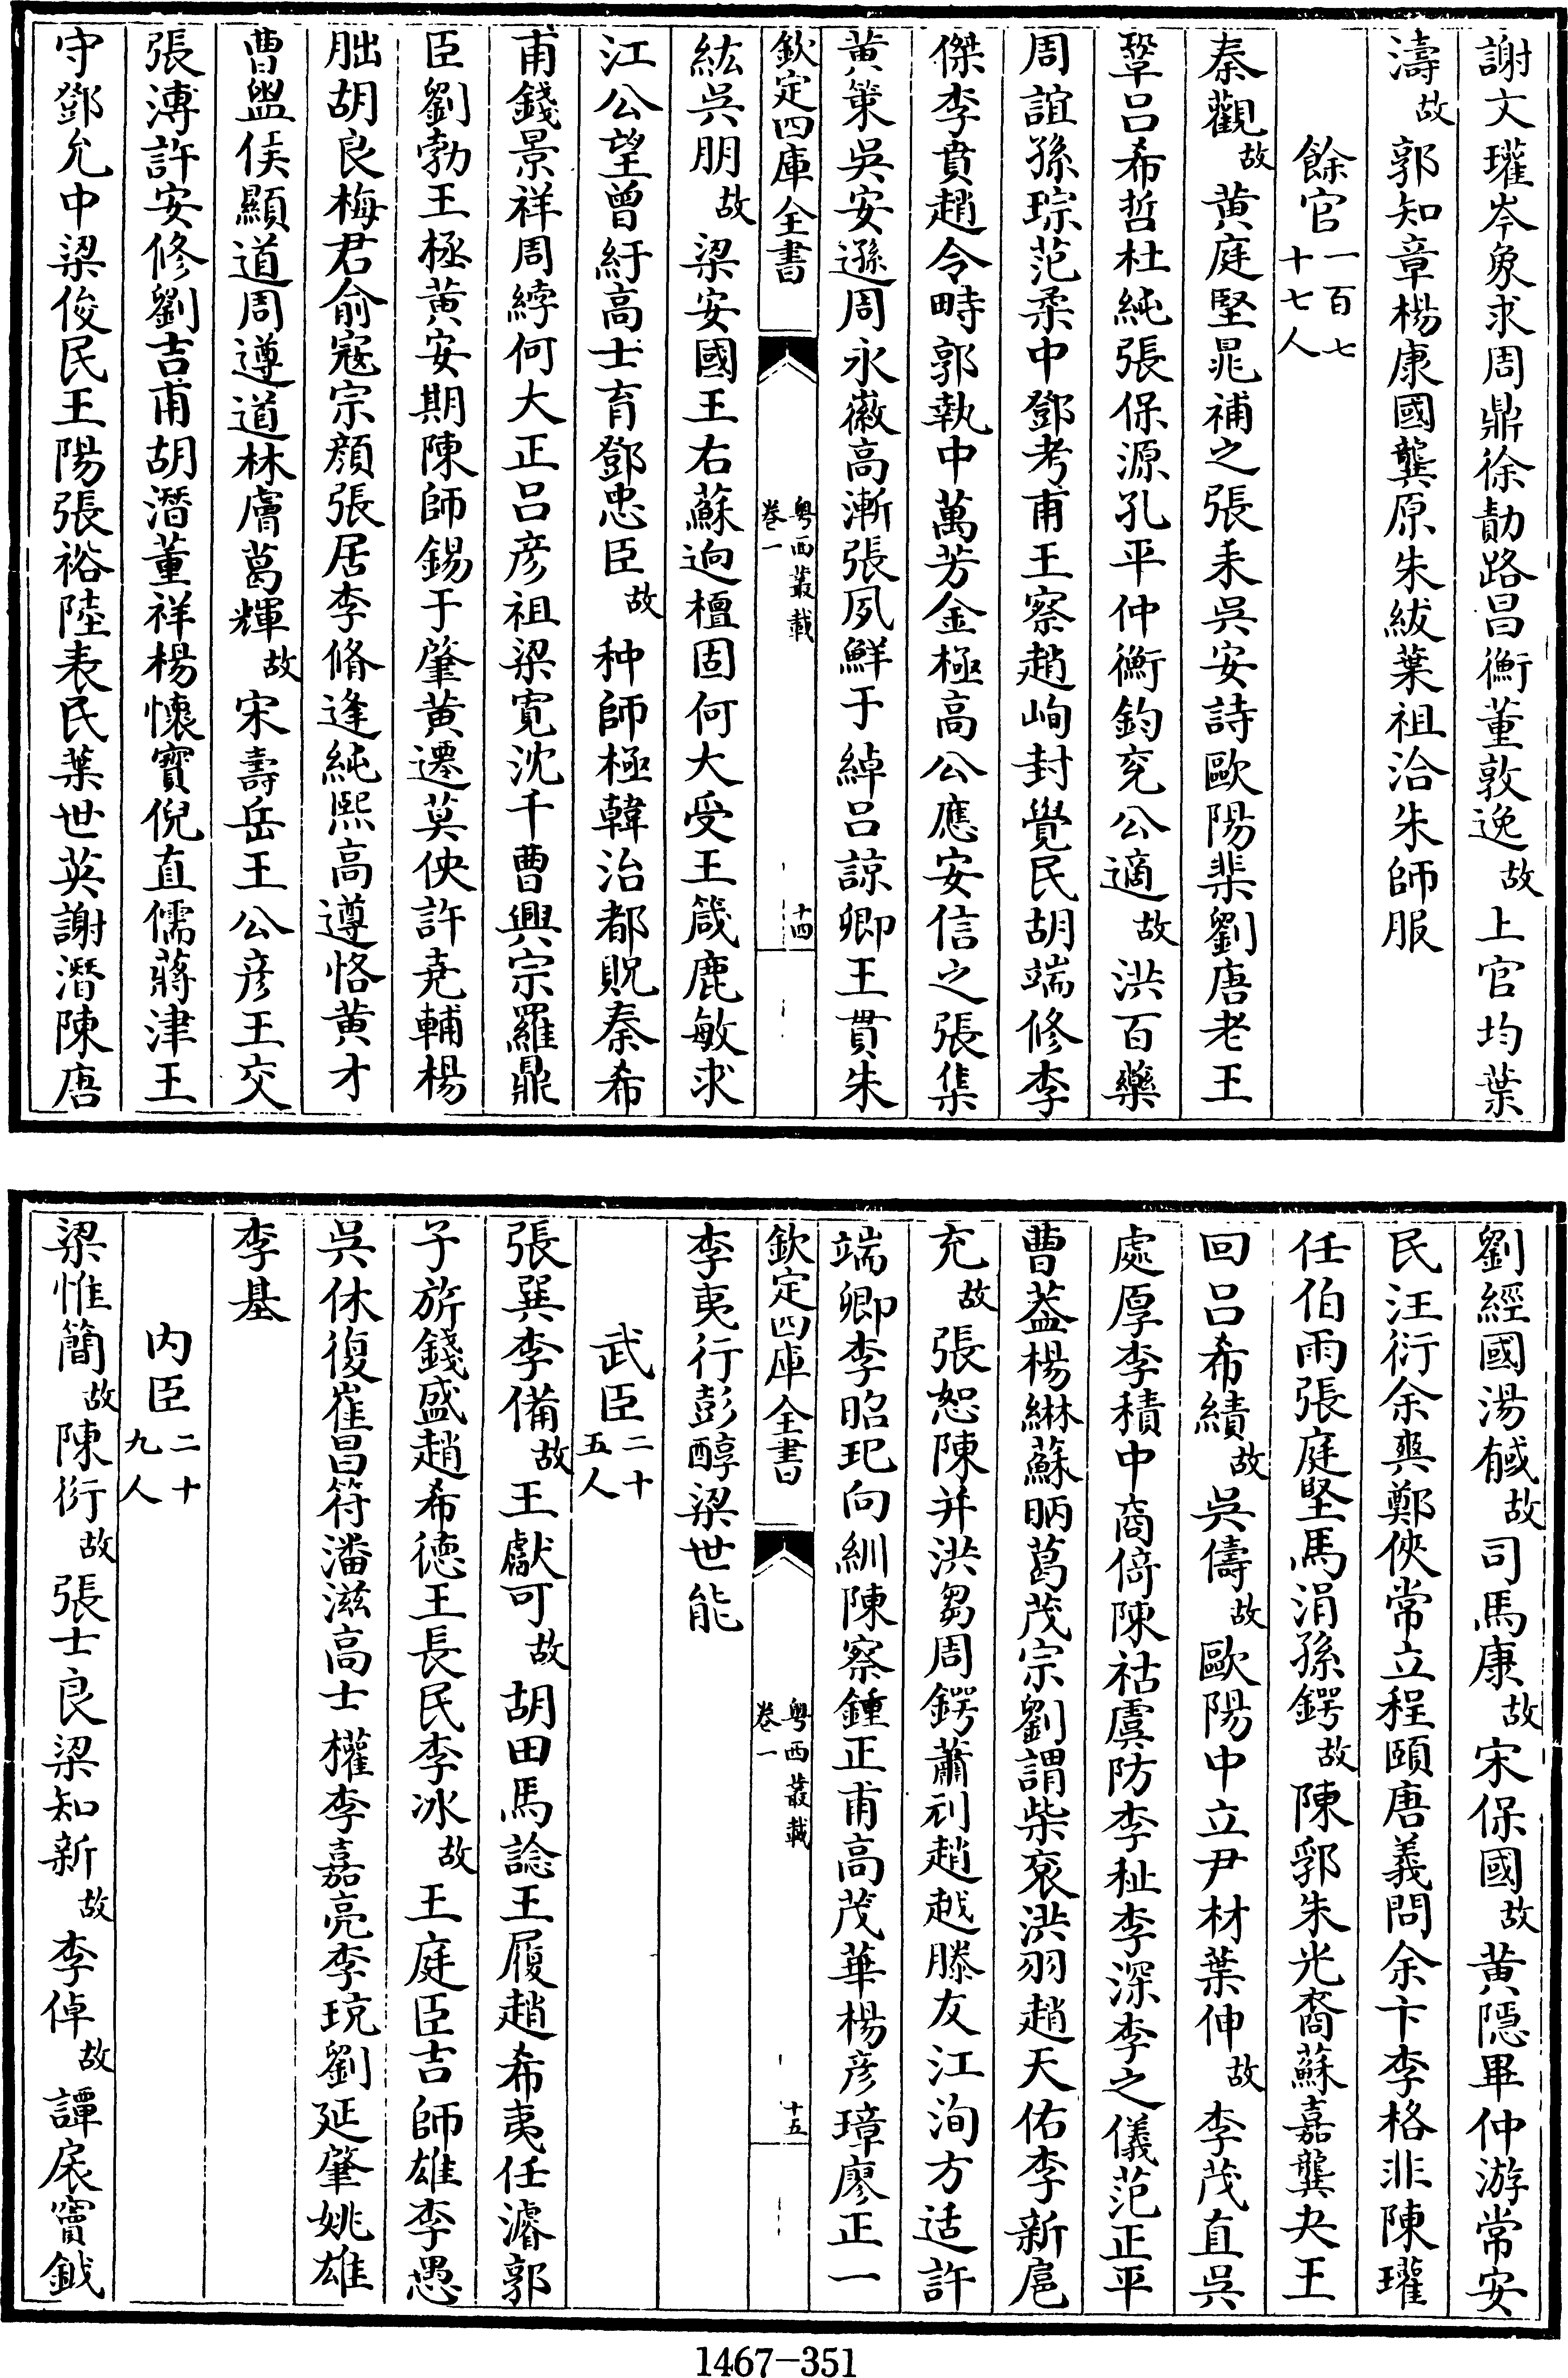 謝文瓘岑象求周鼎徐勣路昌衡董敦逸故上官均葉
濤故郭知章楊康國龔原朱紱葉祖洽朱師服
餘官一百七十七人
秦觀故黃庭堅晁補之張耒吳安詩歐陽棐劉唐老王
鞏呂希哲杜純張保源孔平仲衡鈞兗公適故洪百藥
周誼孫琮范柔中鄧考甫王察趙峋封覺民胡端修李
傑李賁趙令畤郭執中萬芳金極高公應安信之張集
黃策吳安遜周永徽高漸張夙鮮于綽呂諒卿王貫朱
欽定四庫全書
粵西叢載
卷一
十四
紘吳朋故梁安國王右蘇迥檀固何大受王箴鹿敏求
江公望曾紆高士育鄧忠臣故种師極韓治都貺秦希
甫錢景祥周綍何大正呂彥祖梁寬沈千曹興宗羅鼎
臣劉勃王極黃安期陳師錫于肇黃遷莫俠許堯輔楊
朏胡良梅君俞寇宗顔張居李脩逢純熙高遵恪黃才
曹盥侯顯道周遵道林膚葛輝故宋壽岳王公彥王交
張溥許安修劉吉甫胡潛董祥楊懷寳倪直儒蔣津王
守鄧允中梁俊民王陽張裕陸表民葉世英謝潛陳唐
劉經國湯馘故司馬康故宋保國故黃隱畢仲游常安
民汪衍余爽鄭俠常立程頤唐義問余卞李格非陳瓘
任伯雨張庭堅馬涓孫鍔故陳郛朱光裔蘇嘉龔夬王
回呂希績故吳儔故歐陽中立尹材葉伸故李茂直吳
處厚李積中商倚陳祜虞防李祉李深李之儀范正平
曹葢楊綝蘇昞葛茂宗劉謂柴衮洪羽趙天佑李新扈
充故張恕陳并洪芻周鍔蕭刓趙越滕友江洵方适許
端卿李昭玘向紃陳察鍾正甫高茂華楊彥璋廖正一
欽定四庫全書
粵西叢載
卷一
十五
李夷行彭醇梁世能
武臣二十五人
張巽李備故王獻可故胡田馬諗王履趙希夷任濬郭
子旂錢盛趙希德王長民李冰故王庭臣吉師雄李愚
吳休復崔昌符潘滋高士權李嘉亮李珫劉延肇姚雄
李基
內臣二十九人
梁惟簡故陳衍故張士良梁知新故李倬故譚扆竇鉞
1467-351